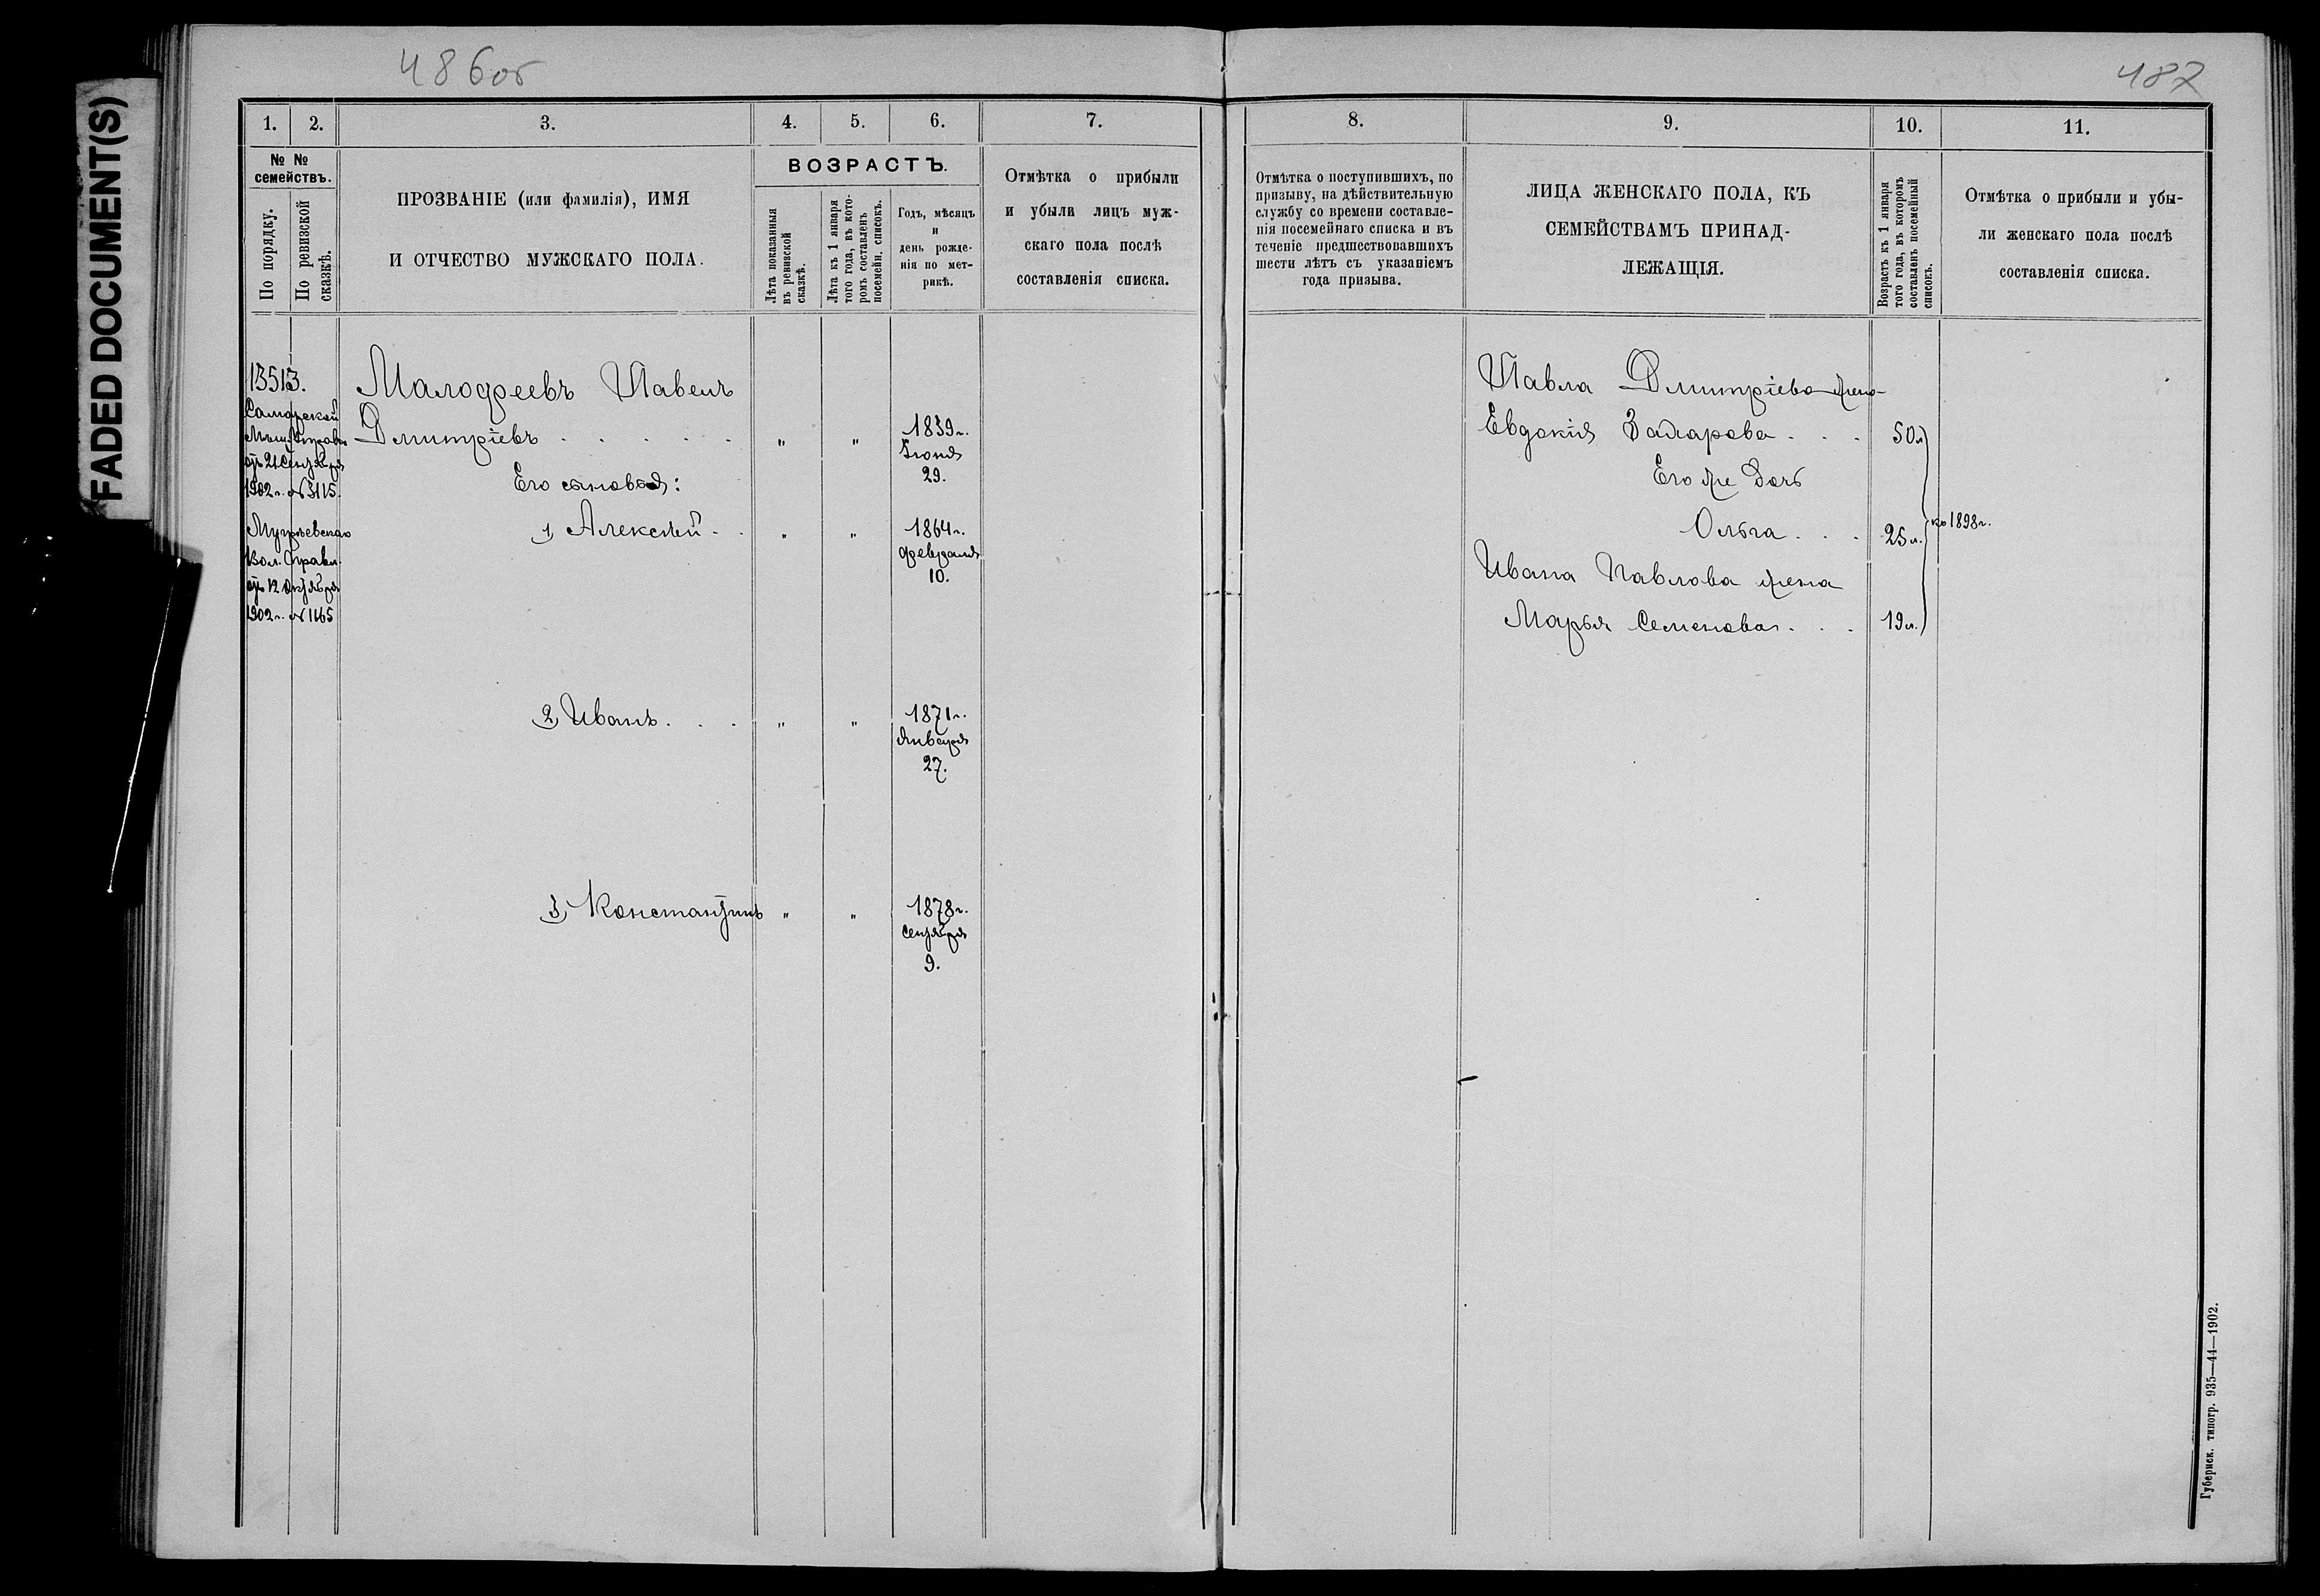 FADED DOCUMENT(S)
486об
487
1.
2.
3.
4.
5.
6.
7.
№ №
семействъ.
По порядку.
По ревизской
сказкѣ.
ПРОЗВАНІЕ (или фамилія), ИМЯ
И ОТЧЕСТВО МУЖСКАГО ПОЛА.
ВОЗРАСТЪ.
Лѣта показанныя
въ ревизской
сказкѣ.
Лѣта къ 1 января
того года, въ кото-
ромъ составленъ
посемейн. списокъ.
Годъ, мѣсяцъ
и
день рожде-
нія по мет-
рикѣ.
Отмѣтка о прибыли
и убыли лицъ муж-
скаго пола послѣ
составленія списка.
13513.
Самарской
Мѣщ. Управы
отъ 21 Сентября
1902 г. № 3115.
вол. Правл.
отъ 12 Октября
1902 г. № 1165
Малофеевъ Павелъ
Дмитріевъ . . . . . . „ „ 1839 г.
Іюня
29.
Его сыновья:
1, Алексѣй . . „ „ 1864 г.
Февраля
10.
2, Иванъ . . . „ „ 1871 г.
Января
27.
3, Константинъ „ „ 1878 г.
Сентября
9.
8.
9.
10.
11.
Отмѣтка о поступившихъ, по
призыву, на дѣйствительную
службу со времени составле-
нія посемейнаго списка и въ
теченіе предшествовавшихъ
шести лѣтъ съ указаніемъ
года призыва.
ЛИЦА ЖЕНСКАГО ПОЛА, КЪ
СЕМЕЙСТВАМЪ ПРИНАД-
ЛЕЖАЩІЯ.
Возрастъ къ 1 января
того года, въ которомъ
составленъ посемейный
списокъ.
Отмѣтка о прибыли и убы-
ли женскаго пола послѣ
составленія списка.
Павла Дмитріева жена
Евдокія Захарова . . . 50 л.
Его же Дочь
Ольга . . . 25 л. къ 1898 г.
Ивана Павлова жена
Марья Семенова . . . 19 л.
Губернск. типогр. 935—44—1902.